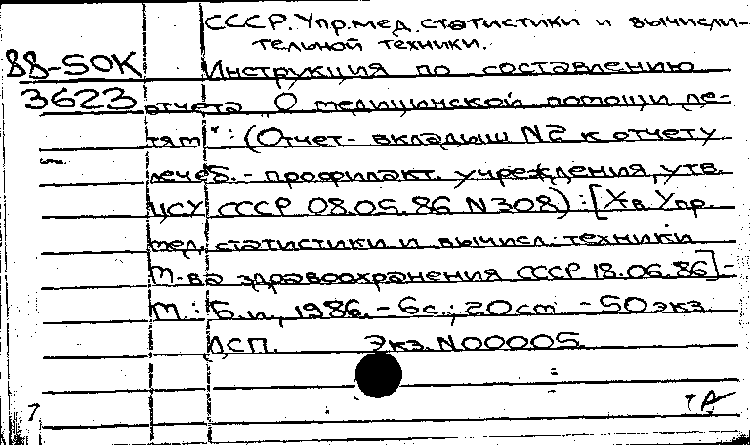 СССР. Упр. мед. статистики и вычисли-
тельной техники.
88-SOK
Инструкция по составлению
3623
отчета "О медицинской помощи де-
тям": (Отчет-вкладыш N2 к отчету
лечеб.-профилакт. учреждения, утв.
ЦСУ СССР 08.05.86 N308) : [Утв. Упр.
мед. статистики и вычисл. техники
М-ва здравоохранения СССР 18.06.86]-
М.: Б.и., 1986. - 6с.; 20см - 50 экз.
ДСП. Экз. N00005.
7